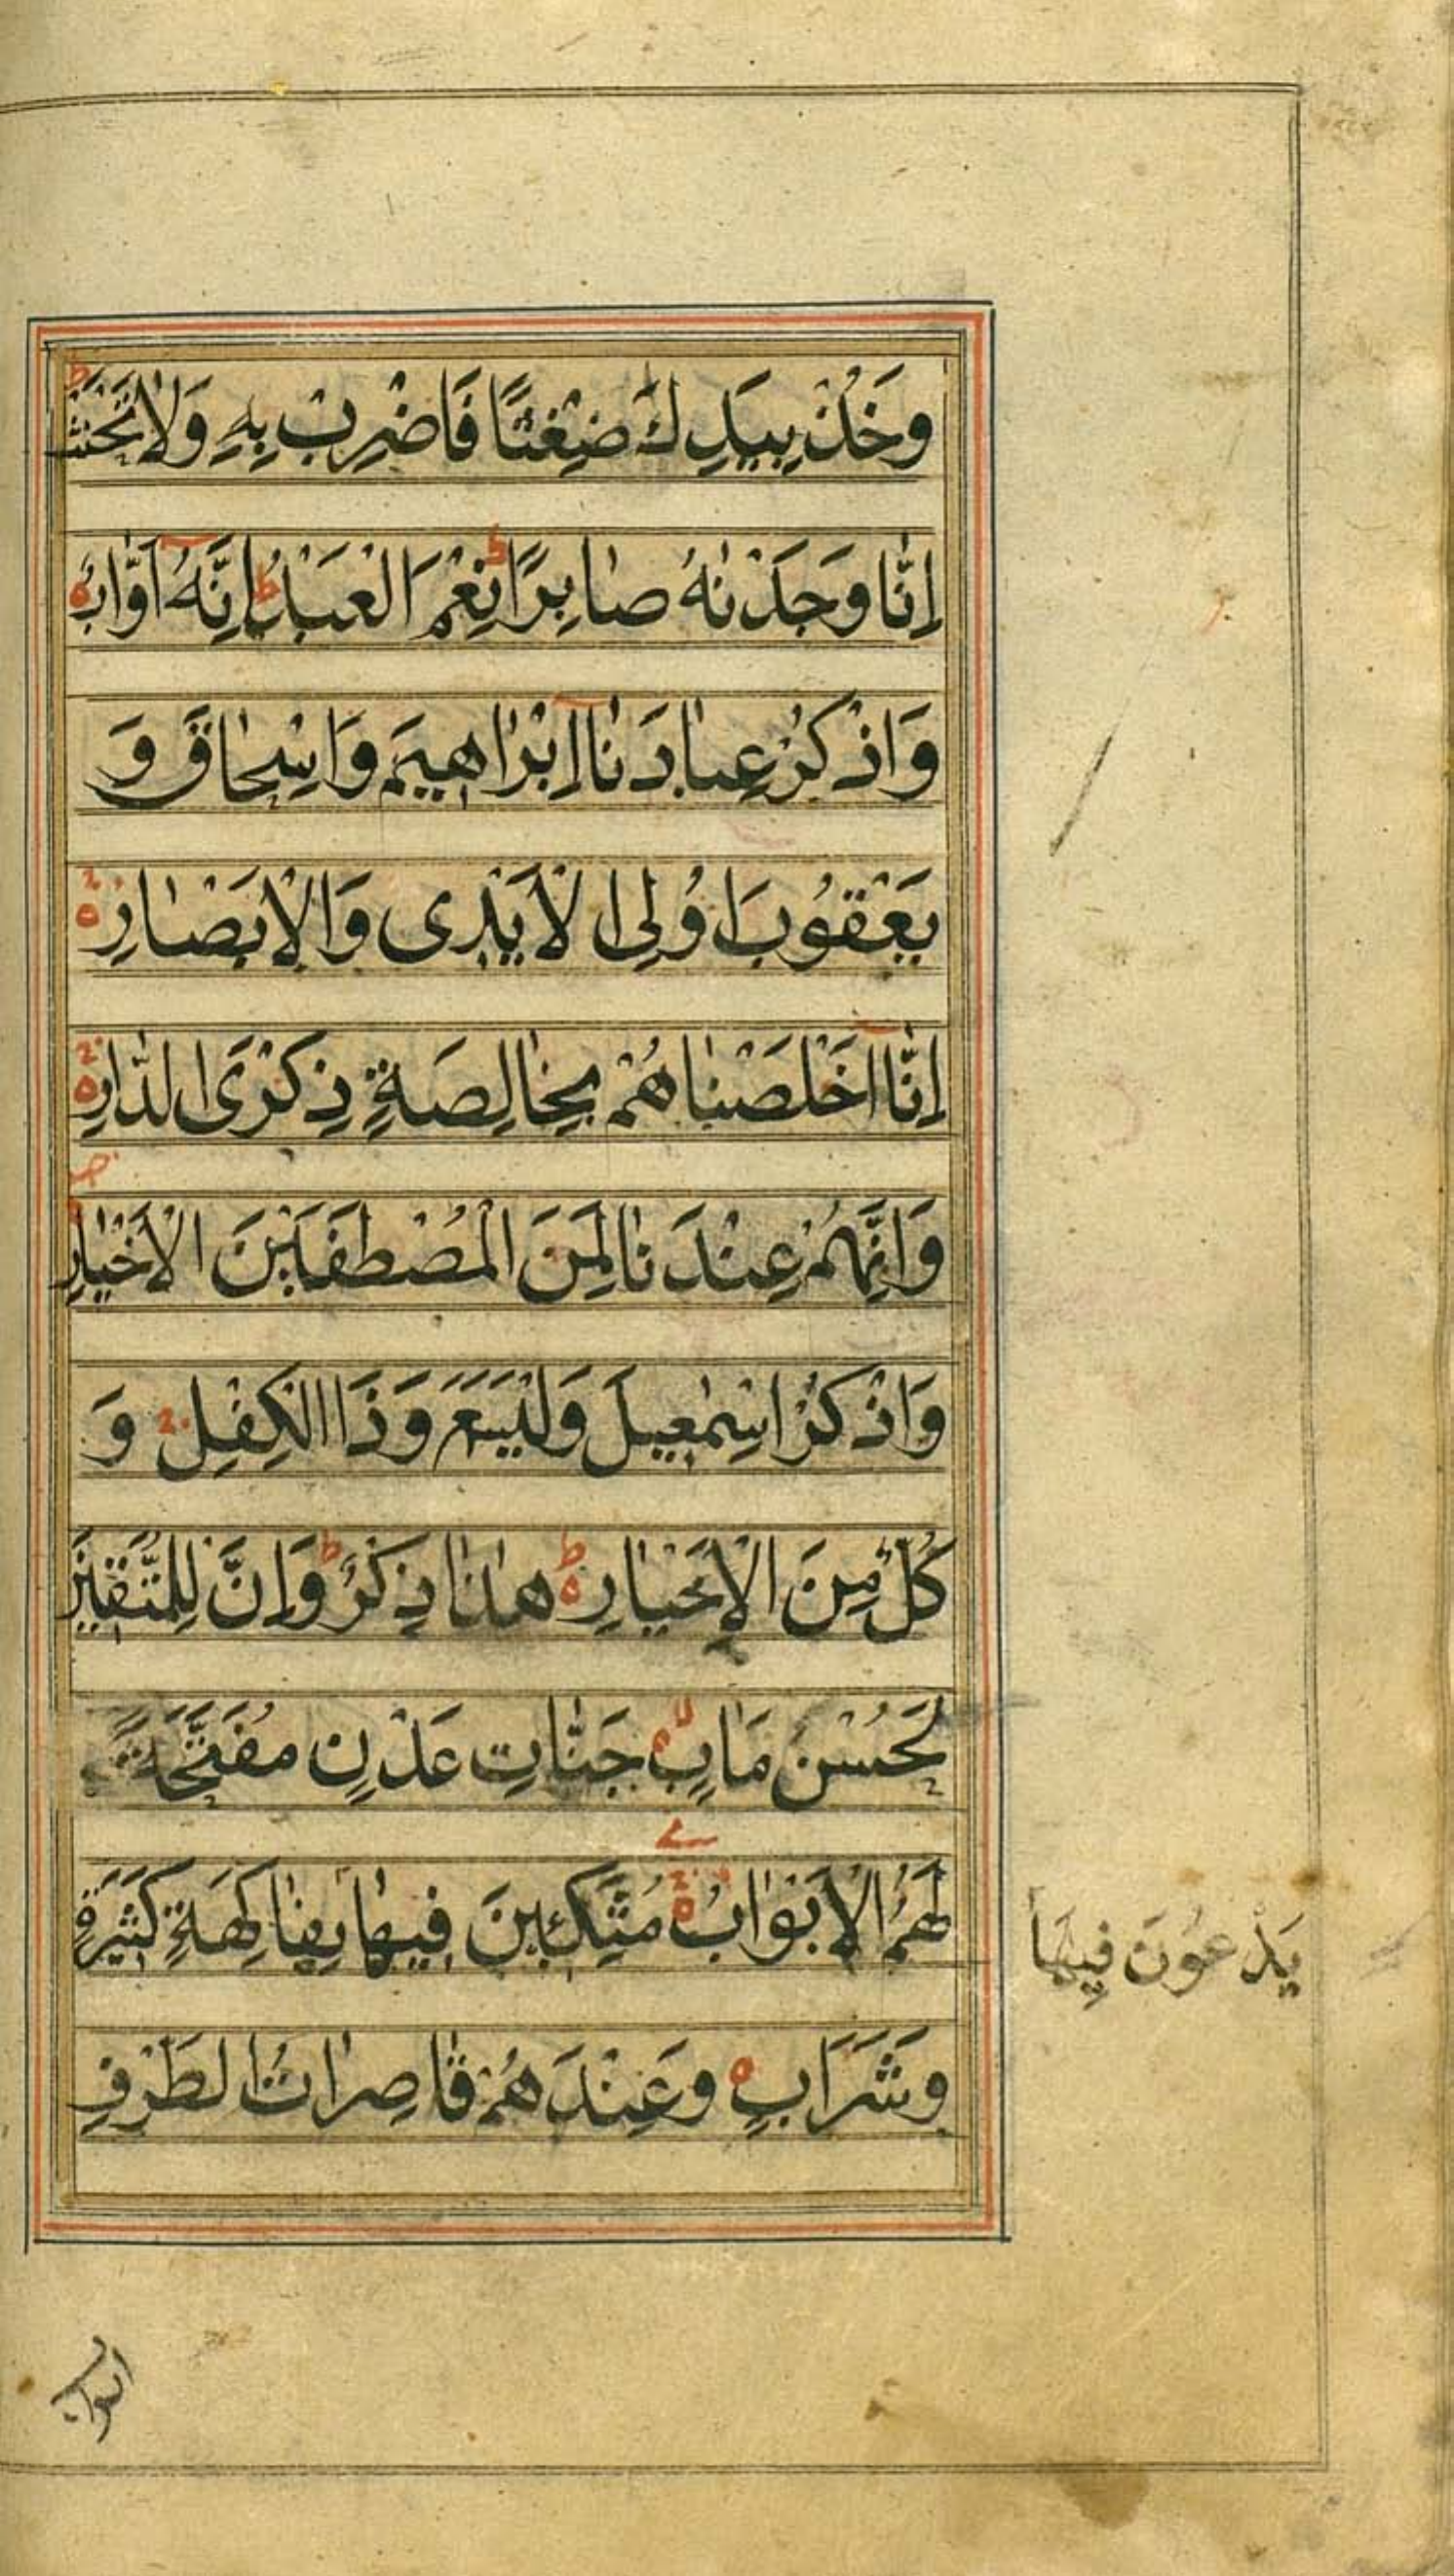 وَخُذْ بِيَدِكَ ضِغْثًا فَاضْرِبْ بِهِ وَلَا تَحْنَثْ ط
اِنَّا وَجَدْنٰهُ صَابِرًا ط نِعْمَ الْعَبْدُ ط اِنَّهُ اَوَّابٌ ه
وَاذْكُرْ عِبَادَنَا اِبْرَاهِيمَ وَاِسْحَاقَ وَ
يَعْقُوبَ اُولِى الْاَيْدِى وَالْاَبْصَارِ ه
اِنَّا اَخْلَصْنَاهُمْ بِخَالِصَةٍ ذِكْرَى الدَّارِ ه
وَاِنَّهُمْ عِنْدَنَا لَمِنَ الْمُصْطَفَيْنَ الْاَخْيَارِ
وَاذْكُرْ اِسْمٰعِيلَ وَلْيَسَعَ وَذَا الْكِفْلِ وَ
كُلٌّ مِنَ الْاَخْيَارِ ه ط هٰذَا ذِكْرٌ ط وَاِنَّ لِلْمُتَّقِينَ
لَحُسْنَ مَاٰبٍ ه لا جَنَّاتِ عَدْنٍ مُفَتَّحَةً
لَهُمُ الْاَبْوَابُ ه مُتَّكِئِينَ فِيهَا بِفَاكِهَةٍ كَثِيرَةٍ
يَدْعُونَ فِيهَا
وَشَرَابٍ ه وَعِنْدَهُمْ قَاصِرَاتُ الطَّرْفِ
اتراب